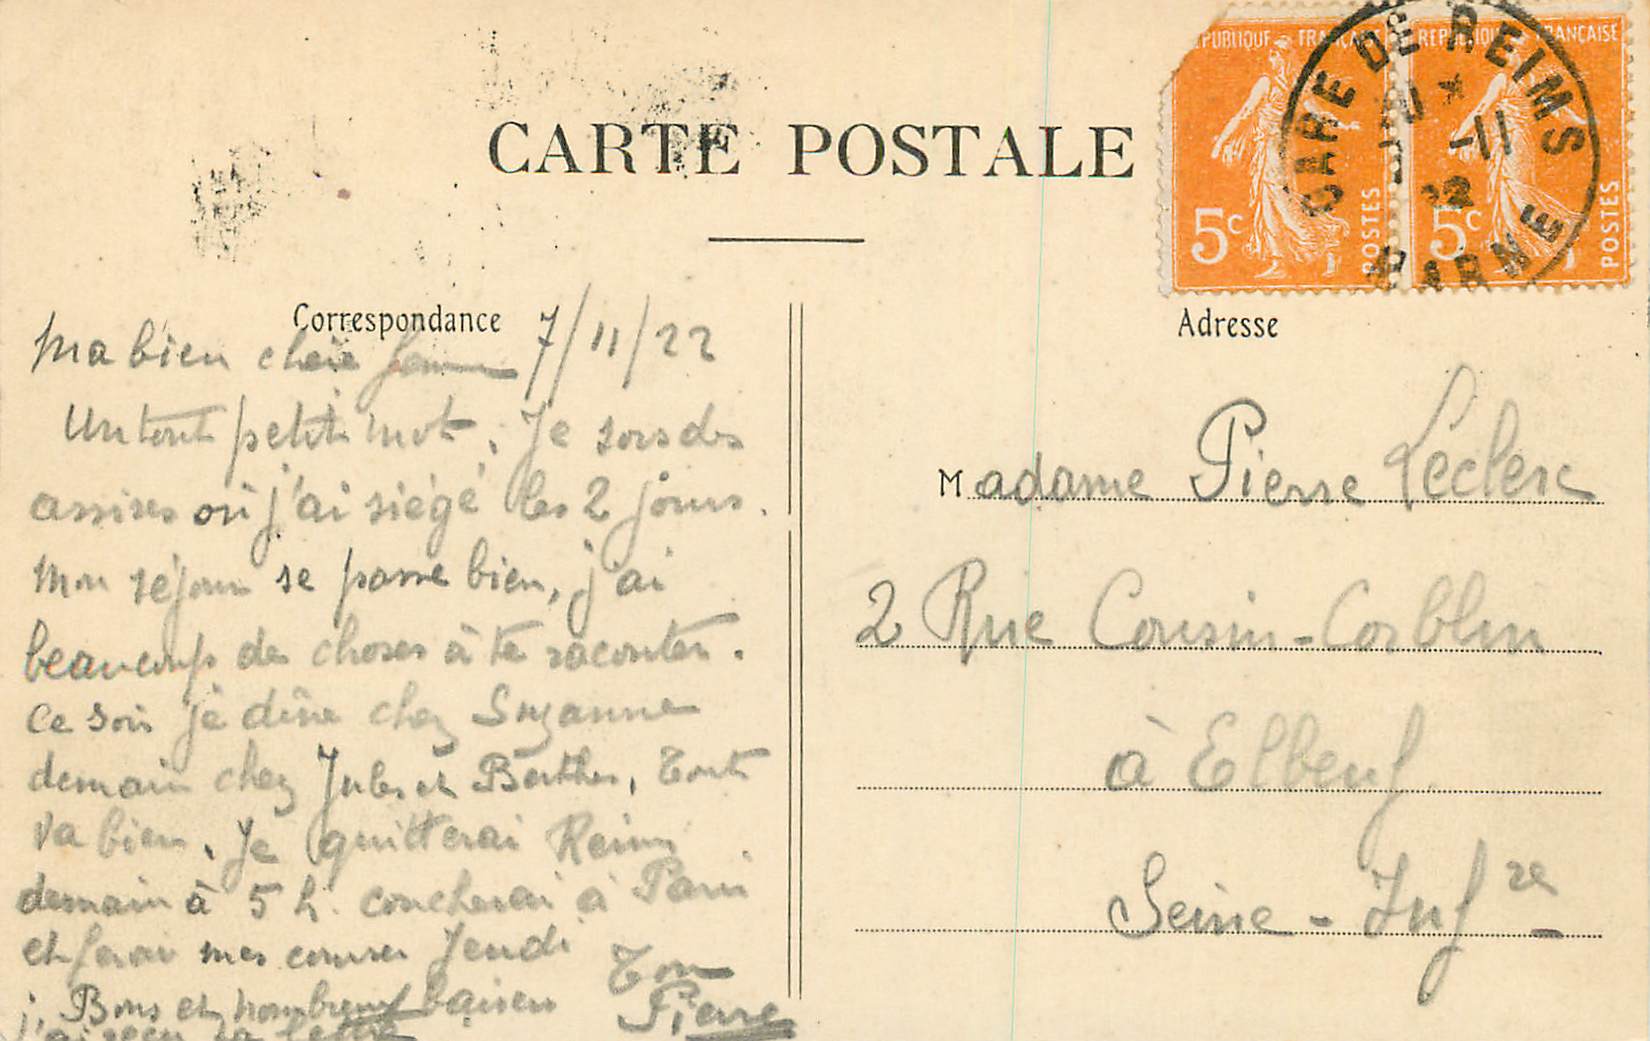 CARTE POSTALE
RÉPUBLIQUE FRANÇAISE
5c
POSTES
RÉPUBLIQUE FRANÇAISE
5c
POSTES
GARE DE REIMS
-11
22
MARNE
Correspondance
7/11/22
Ma bien chère
Un tout petit mot. Je sors des
assises où j'ai siégé les 2 jours.
Mon séjour se passe bien, j'ai
beaucoup de choses à te raconter.
Ce soir je dîne chez Suzanne
demain chez Jules et Berthe, Tout
va bien. Je quitterai Reims
demain à 5 h. coucherai à Paris
et ferai mes courses Jeudi
Bons et nombreux baisers
Ton
Pierre
j'ai reçu ta lettre
Adresse
Madame Pierre Leclerc
2 Rue Cousin-Corblin
à Elbeuf
Seine-Infre